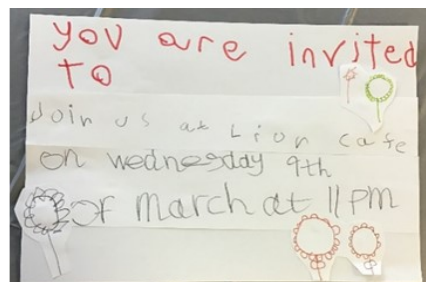 you are invited
to
Join us at Lion cafe
on wednesday 9th
of march at 11pm